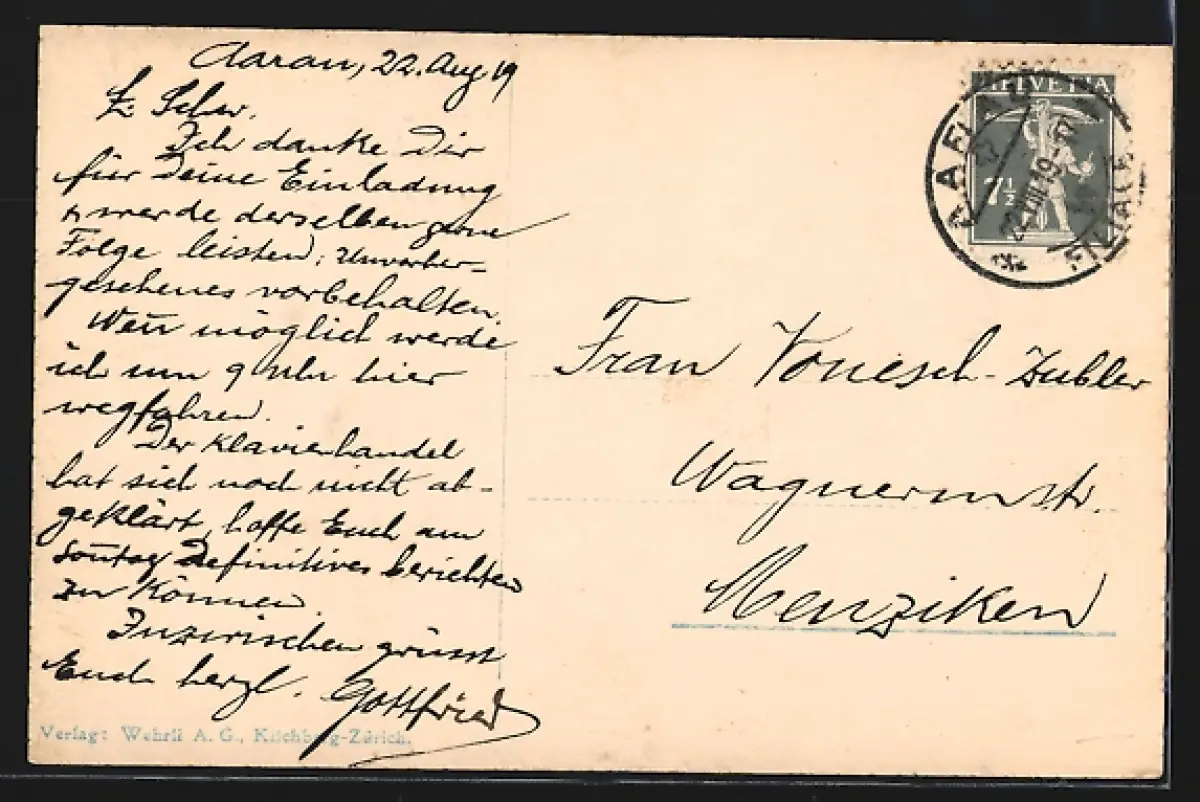 Aarau, 22. Aug 19
L. Schw.
Ich danke Dir
für Deine Einladung
& werde derselben gerne
Folge leisten, Unvorher-
gesehenes vorbehalten.
Wen̄ möglich werde
ich um 9 Uhr hier
wegfahren.
Der Klavierhandel
hat sich noch nicht ab-
geklärt, hoffe Euch am
Son̄tag Definitives berichten
zu können.
Inzwischen grüsst
Euch herzl. Gottfried
Verlag: Wehrli A. G., Kilchberg-Zürich.
HELVETIA
7½
AARAU
22.VIII.19-17
FILIALE
Frau Vonesch-Zubler
Wagnermstr.
Menziken